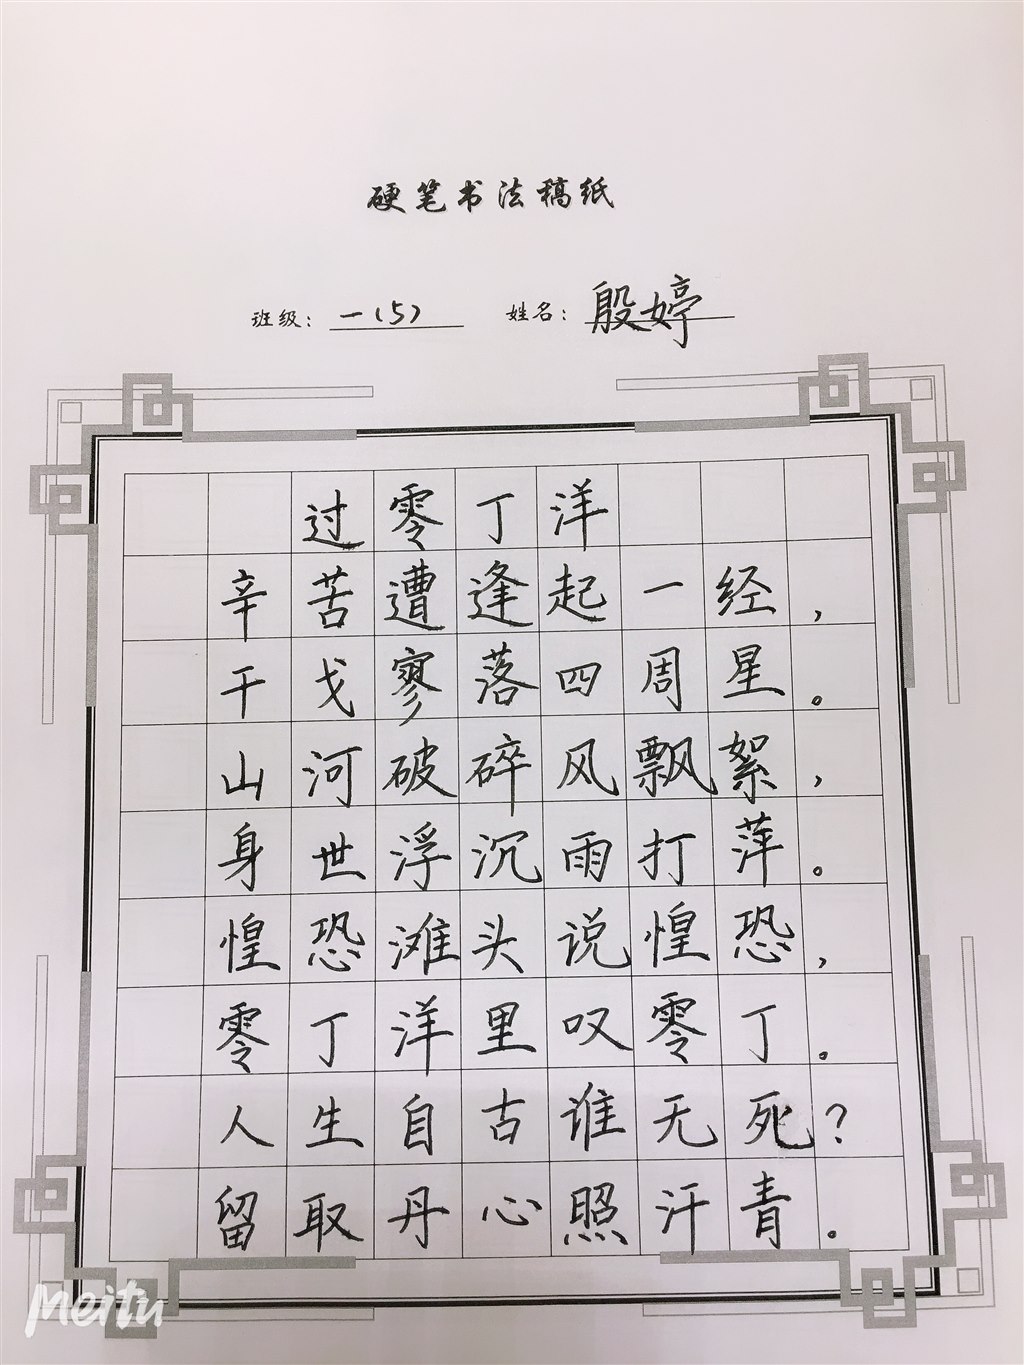 硬笔书法稿纸
班级：一（5） 姓名：殷婷
过零丁洋
辛苦遭逢起一经，
干戈寥落四周星。
山河破碎风飘絮，
身世浮沉雨打萍。
惶恐滩头说惶恐，
零丁洋里叹零丁。
人生自古谁无死？
留取丹心照汗青。
Meitu